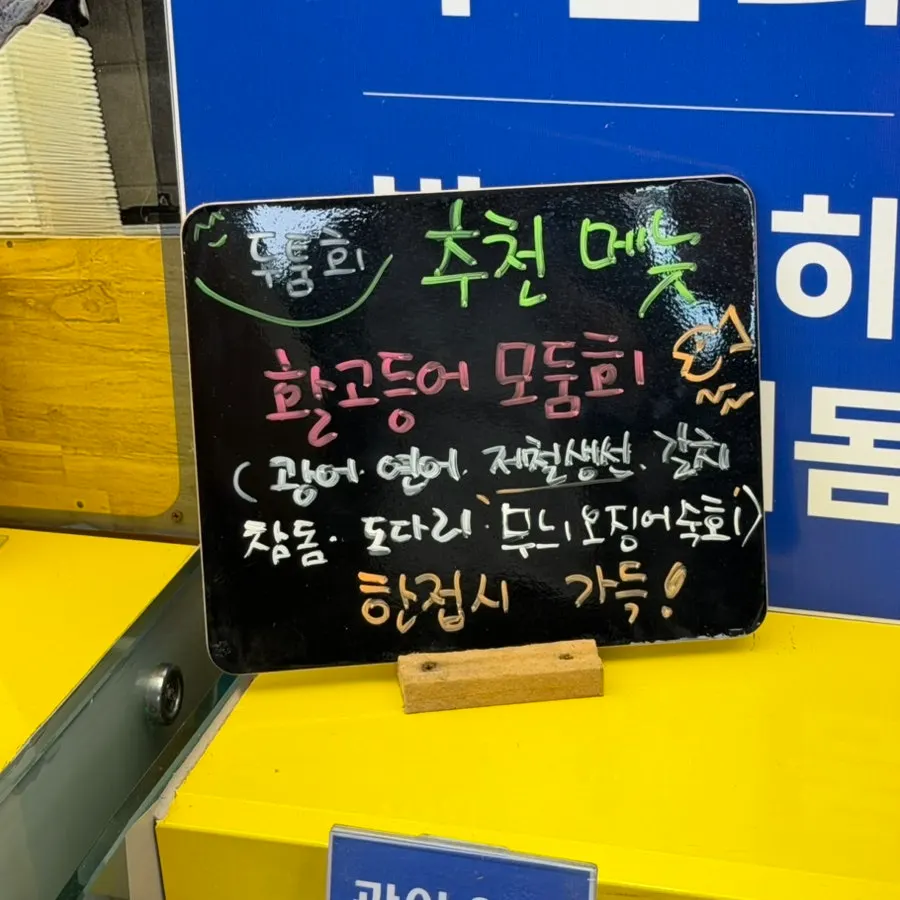 두툼회 추천 메뉴
활고등어 모둠회
(광어. 연어. 제철생선. 갈치
참돔. 도다리. 무늬오징어숙회)
한접시 가득!
회
돔